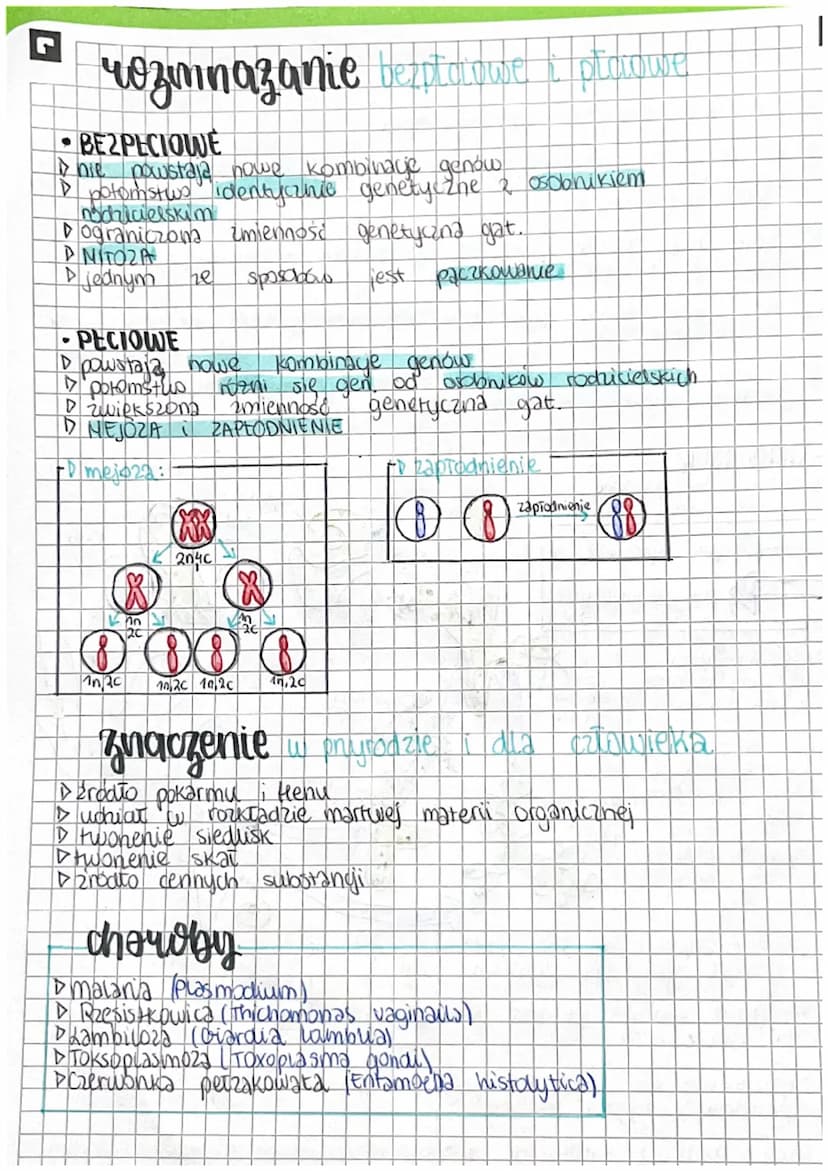 rozmnażanie bezpłciowe i płciowe
• BEZPŁCIOWE
▷ nie powstają nowe kombinacje genów
▷ potomstwo identycznie genetyczne z osobnikiem
rodzicielskim
▷ ograniczona zmienność genetyczna gat.
▷ MITOZA
▷ jednym ze sposobów jest pączkowanie
• PŁCIOWE
▷ powstają nowe kombinacje genów
▷ potomstwo różni się gen. od osobników rodzicielskich
▷ zwiększona zmienność genetyczna gat.
▷ MEJOZA i ZAPŁODNIENIE
▷ mejoza:
2n,4c
1n
2c
1n
2c
1n,2c 1n,2c 1n,2c 1n,2c
▷ zapłodnienie
zapłodnienie
znaczenie w przyrodzie i dla człowieka
▷ źródło pokarmu i tlenu
▷ udział w rozkładzie martwej materii organicznej
▷ tworzenie siedlisk
▷ tworzenie skał
▷ źródło cennych substancji
choroby
▷ malaria (Plasmodium)
▷ Rzęsistkowica (Trichomonas vaginalis)
▷ Lamblioza (Giardia lamblia)
▷ Toksoplasmoza (Toxoplasma gondii)
▷ Czerwonka pełzakowata (Entamoeba histolytica)